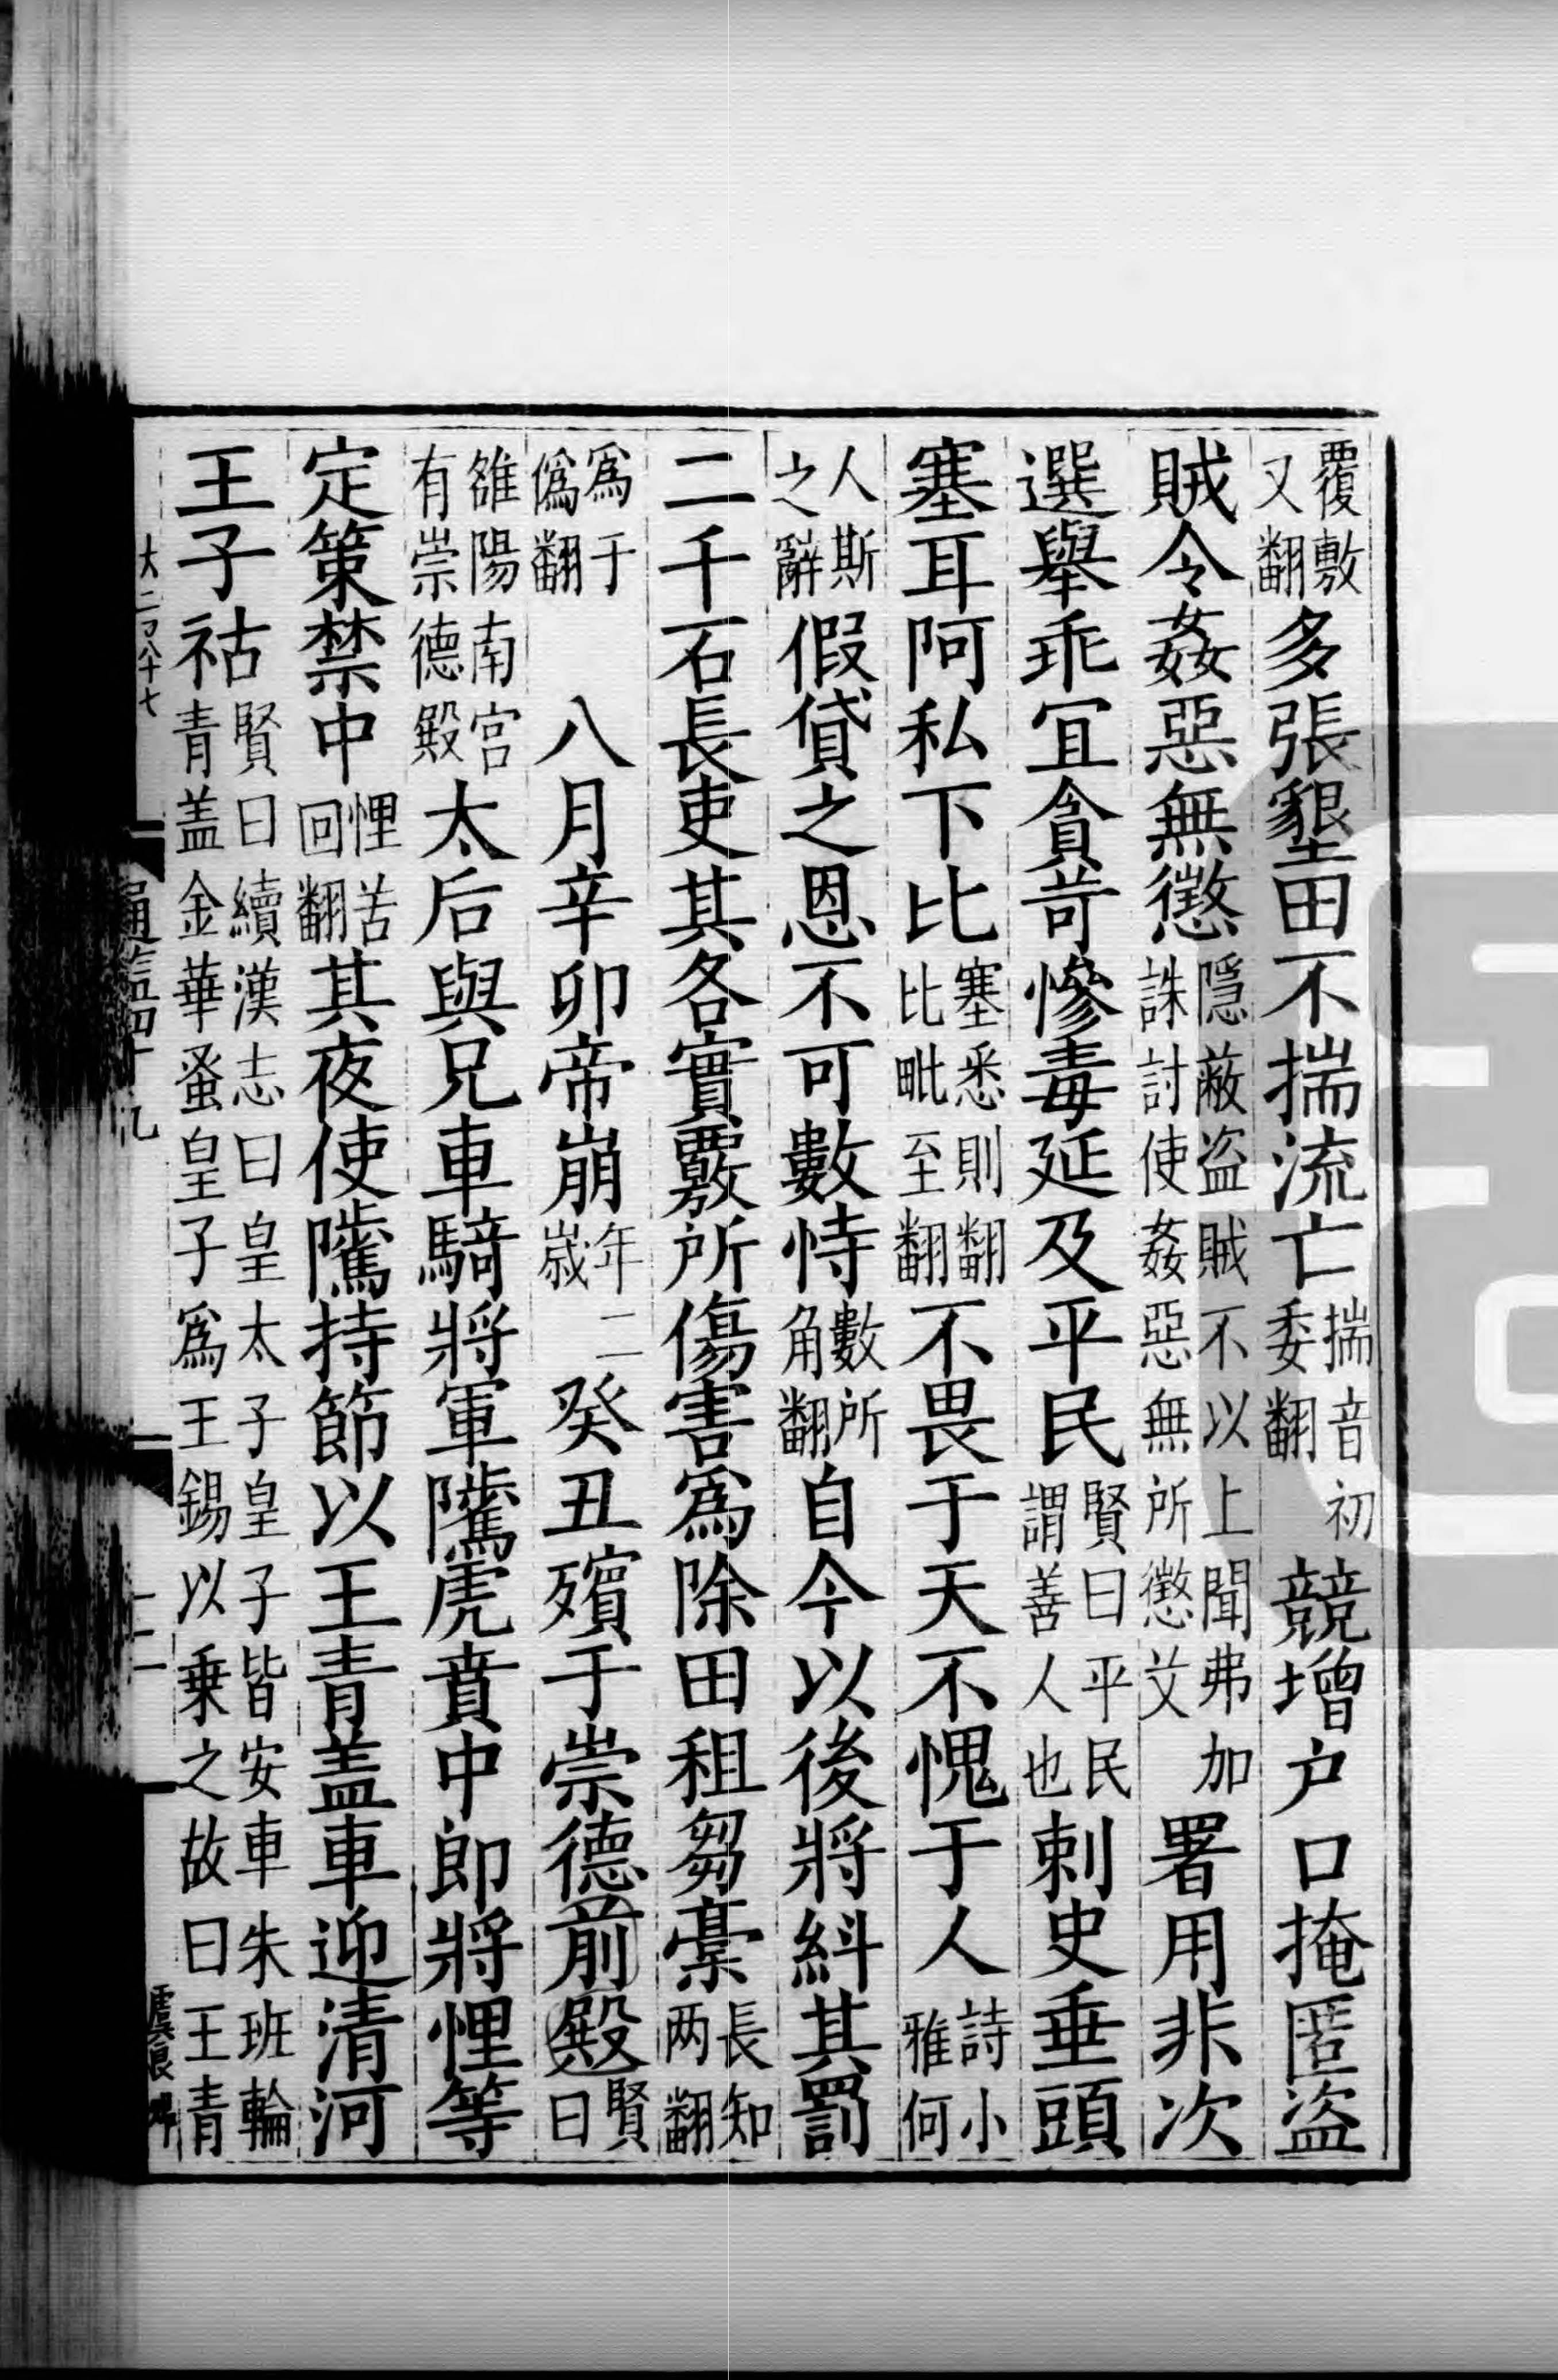 覆敷又翻多張墾田不揣流亡揣音初委翻競增户口掩匿盗
賊令姦惡無懲隱蔽盗賊不以上聞弗加誅討使姦惡無所懲艾署用非次
選舉乖宜貪苛慘毒延及平民賢曰平民謂善人也刺史垂頭
塞耳阿私下比塞悉則翻比毗至翻不畏于天不愧于人詩小雅何
人斯之辭假貸之恩不可數恃數所角翻自今以後將糾其罰
二千石長吏其各實覈所傷害爲除田租芻稾長知两翻
爲于僞翻八月辛卯帝崩年二歲癸丑殯于崇德前殿賢曰
雒陽南宫有崇德殿太后與兄車騎將軍騭虎賁中郎將悝等
定策禁中悝苦回翻其夜使騭持節以王青盖車迎清河
王子祜賢曰續漢志曰皇太子皇子皆安車朱班輪青盖金華蚤皇子爲王錫以乗之故曰王青